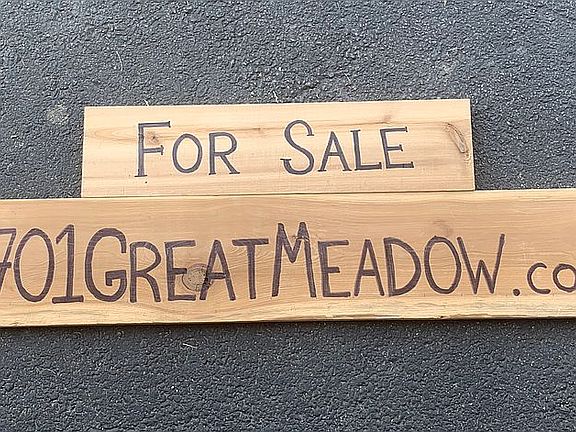 FOR SALE
701GREATMEADOW.CO